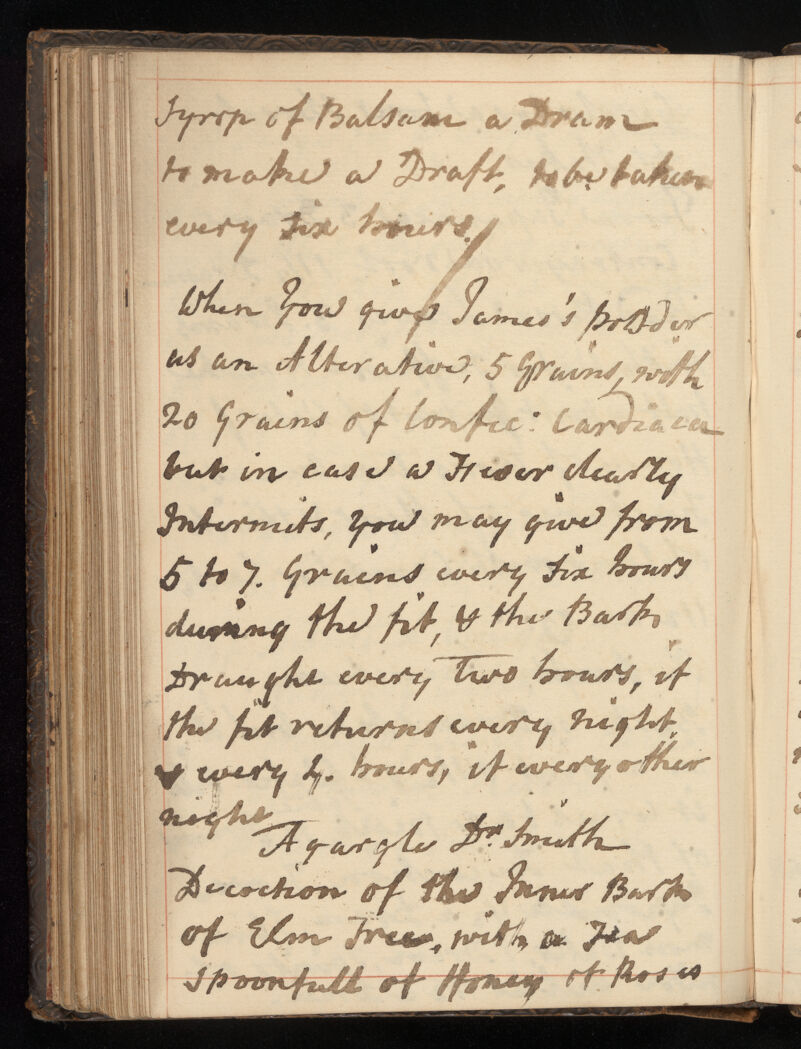 Syrop of Balsam a Dram
to make a Draft, to be taken
every six hours.
When You give James's powder
as an Alterative, 5 Grains, with
20 Grains of Confec: Cardiaca
but in case a Fever clearly
Intermits, you may give from
5 to 7. Grains every six hours
during the fit, & the Bark
Draught every Two hours, if
the fit returns every night,
& every 4. hours, if every other
night
A gargle Dr. Smith
Decoction of the Inner Bark
of Elm Tree, with a Tea
spoonfull of Honey of Roses